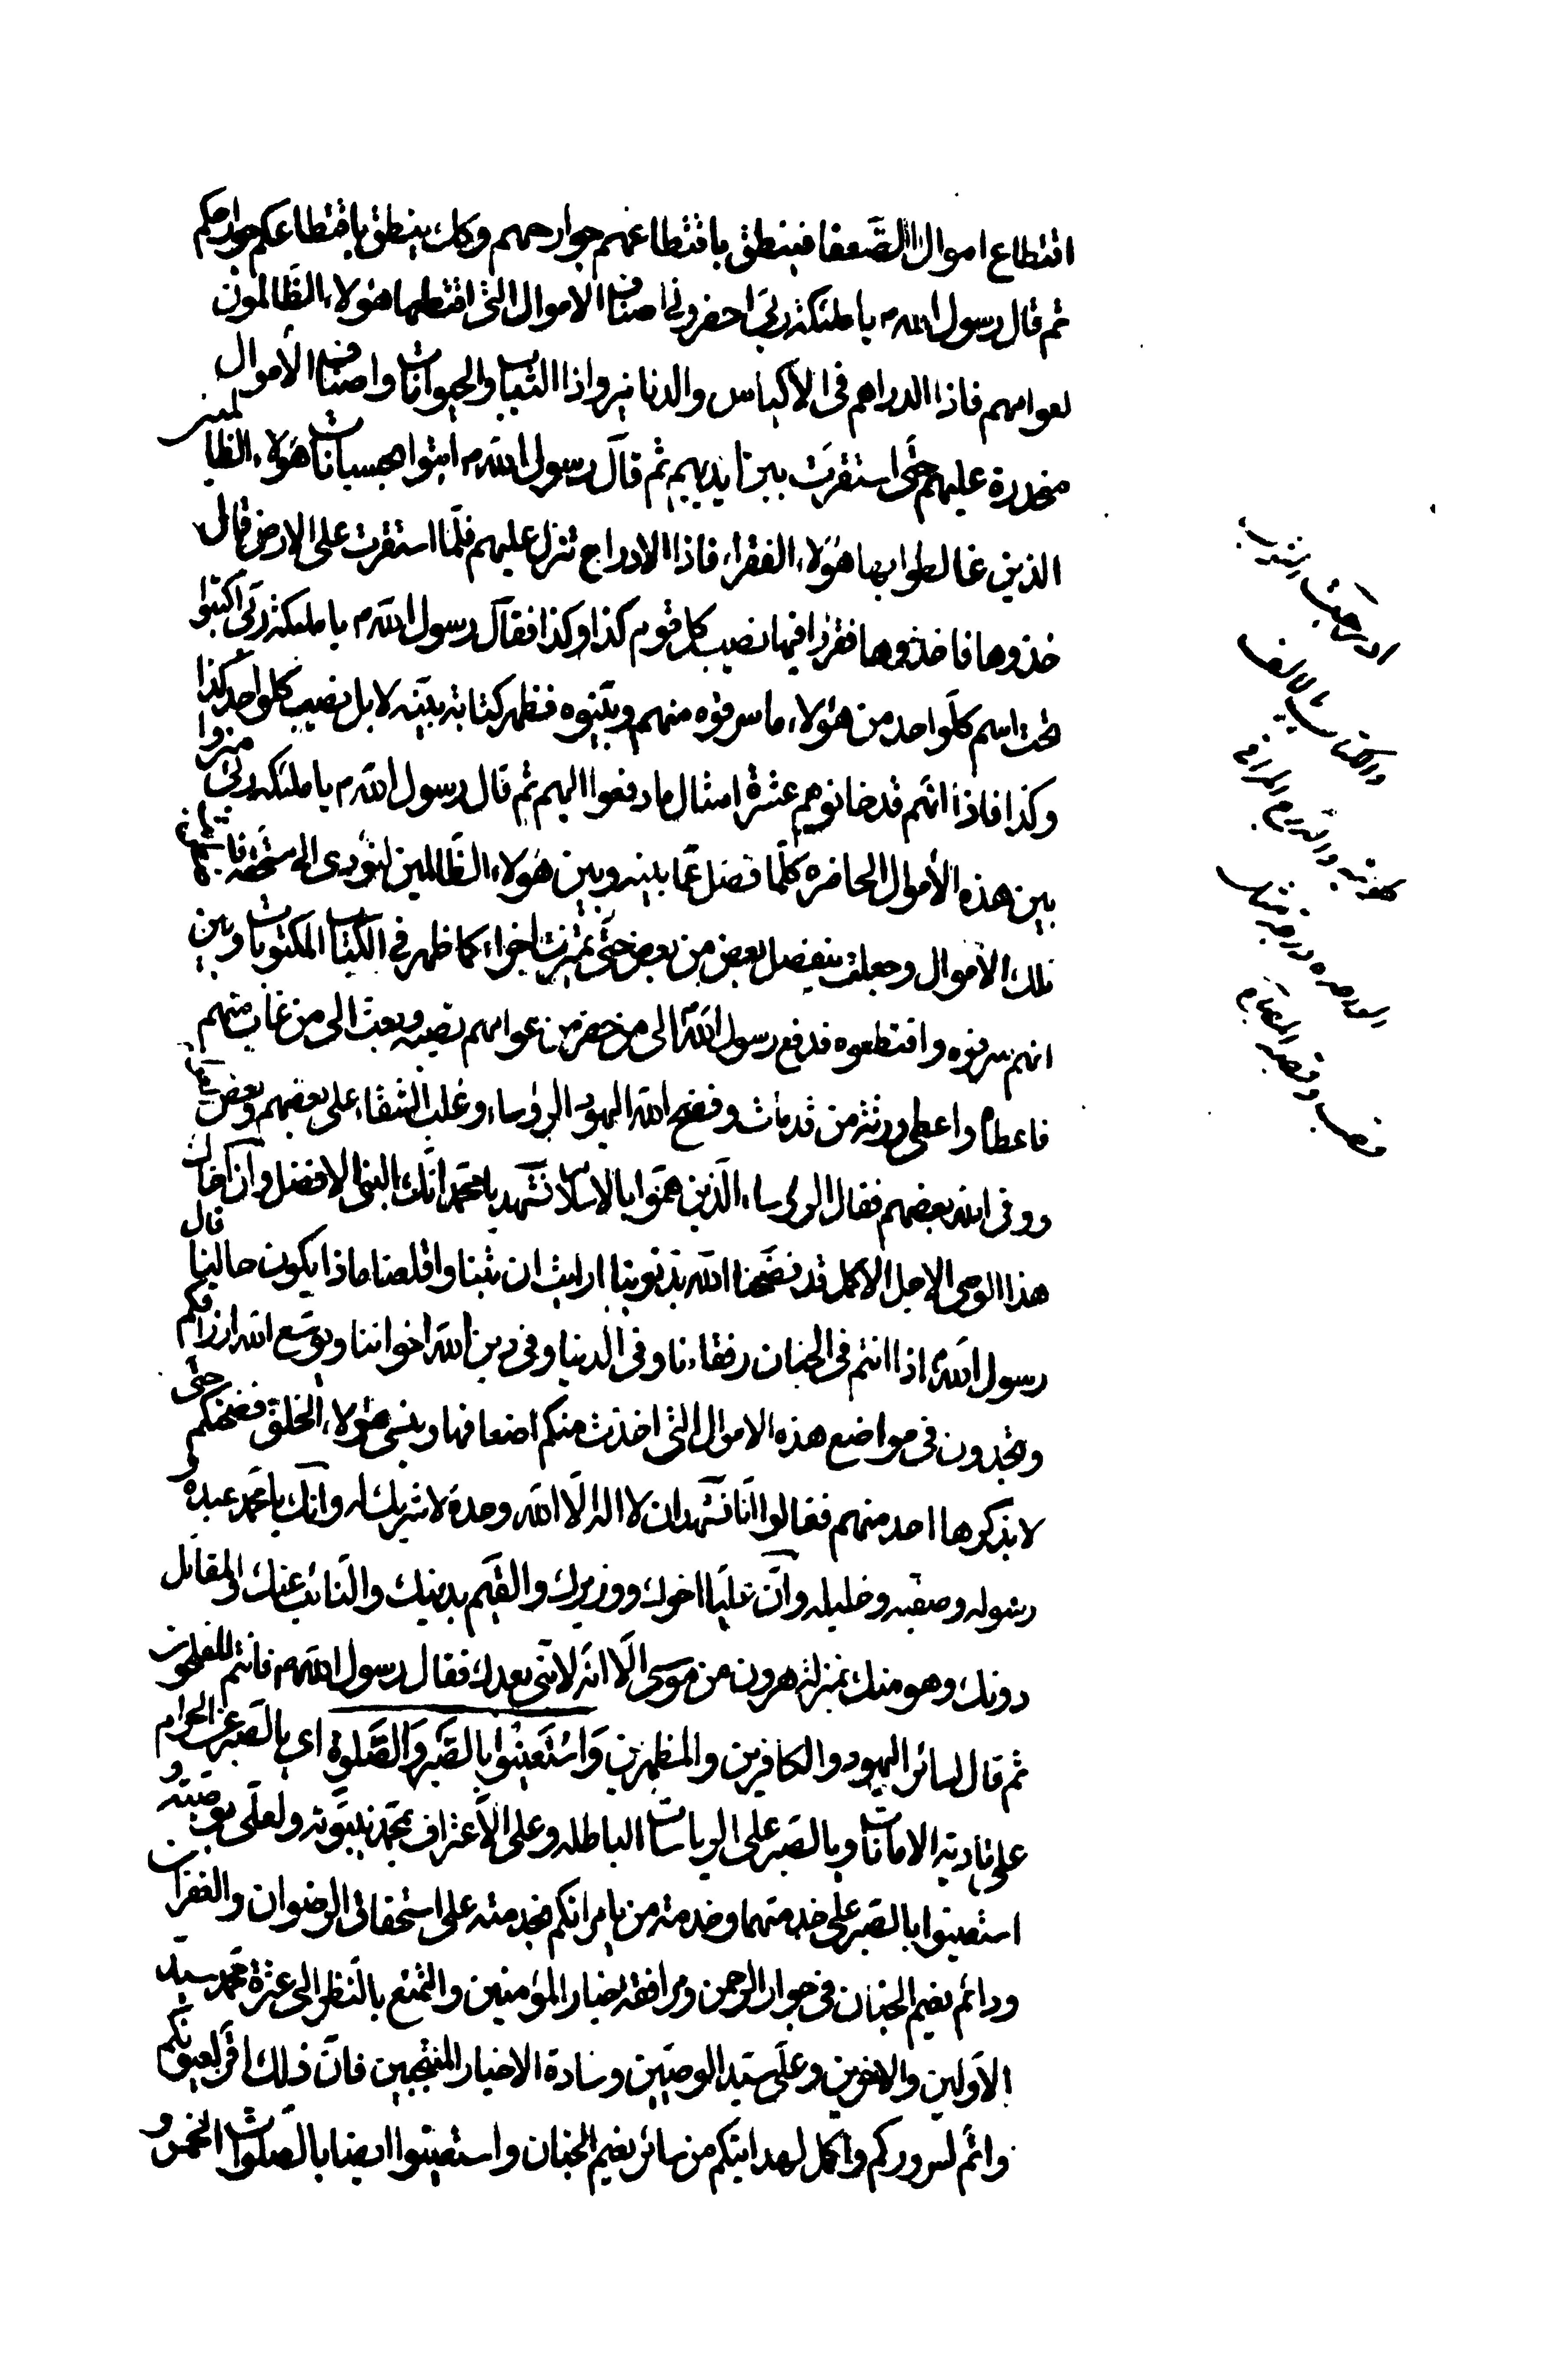 اقتطاع اموال الضعفا فينطق باقتطاعهم جوارحهم وكك ينطق باقتطاعكم جوارحكم
ثم قال رسول الله ص يا ملئكة ربي احضروني اصناف الاموال التي اقتطعها هؤلاء الظالمون
لعوامهم فاذا الدراهم في الأكياس والدنانير واذا الثياب والحيوانات واصناف الأموال
منحدرة عليهم حتى استقرت بين ايديهم ثم قال رسول الله ص ايتوا بحسبانات هؤلاء الظالمين
الذين غالطوا بها هؤلاء الفقراء فاذا الادراج تنزل عليهم فلما استقرت على الارض قال
خذوها فاخذوها فقرؤا فيها نصيب كل قوم كذا وكذا فقال رسول الله ص يا ملئكة ربي اكتبوا
تحت اسم كل واحد من هؤلاء ما سرقوه منهم وبينوه فظهر كتابة بينه لا بل نصيب كل واحد كذا
وكذا فاذا انهم قد خانوهم عشرة امثال ما دفعوا اليهم ثم قال رسول الله ص يا ملئكة ربي ميزوا
بين هذه الأموال الحاضره كلما فضل عما بينه وبين هؤلاء الظالمين لتؤدى الى مستحقه
تلك الأموال وجعلت ينفصل بعض من بعض حتى تميزت اجزاء كما ظهر في الكتاب المكتوبات وبين
انهم سرقوه واقتطعوه فدفع رسول الله ص الى من حضر من عوامهم نصيبه وبعث الى من غاب منهم
فاعطاه واعطى ورثة من قد مات وفضح الله اليهود الرؤساء وغلب الشقاء على بعضهم وبعض
ووفق الله بعضهم فقال الرؤساء الذين هموا بالاسلام نشهد يا محمد انك النبي الافضل وان اخاك
هذا الوصي الاجل الاكمل قد فضحنا الله بذنوبنا ارايت ان تبنا واقلعنا ماذا يكون حالنا قال
رسول الله ص اذا انتم في الجنان رفقاءنا وفي الدنيا وفي دين الله اخواننا ويوسع الله ارزاقكم
وتجدون في مواضع هذه الاموال التي اخذت منكم اضعافها وينسى هؤلاء الخلق فضيحتكم حتى
لا يذكرها احد منهم فقالوا انا نشهد ان لا اله الا الله وحده لا شريك له وانك يا محمد عبده و
رسوله وصفيه وخليله وان عليا اخوك ووزيرك والقيم بدينك والنائب عنك والمقاتل
دونك وهو منك بمنزلة هرون من موسى الا انه لا نبي بعدك فقال رسول الله ص فانتم المفلحون
ثم قال لسائر اليهود والكافرين والمظهرين وَاسْتَعِينُوا بِالصَّبْرِ وَالصَّلوةِ اى بالصبر عن الحرام
على تادية الامانات وبالصبر على الرياسات الباطله وعلى الأعتراف لمحمد بنبوته ولعلي بوصيته و
استعينوا بالصبر على خدمتهما وخدمة من يامرانكم بخدمته على استحقاق الرضوان والغفران
ودائم نعيم الجنان في جوار الرحمن ومرافقة خيار المؤمنين والتمتع بالنظر الى عترة محمد سيد
الأولين والاخرين وعلى سيد الوصيين وسادة الاخيار المنتجبين فان ذلك اقر لعيونكم
واتم لسروركم واكمل لهدايتكم من سائر نعيم الجنان واستعينوا ايضا بالصلوات الخمس و